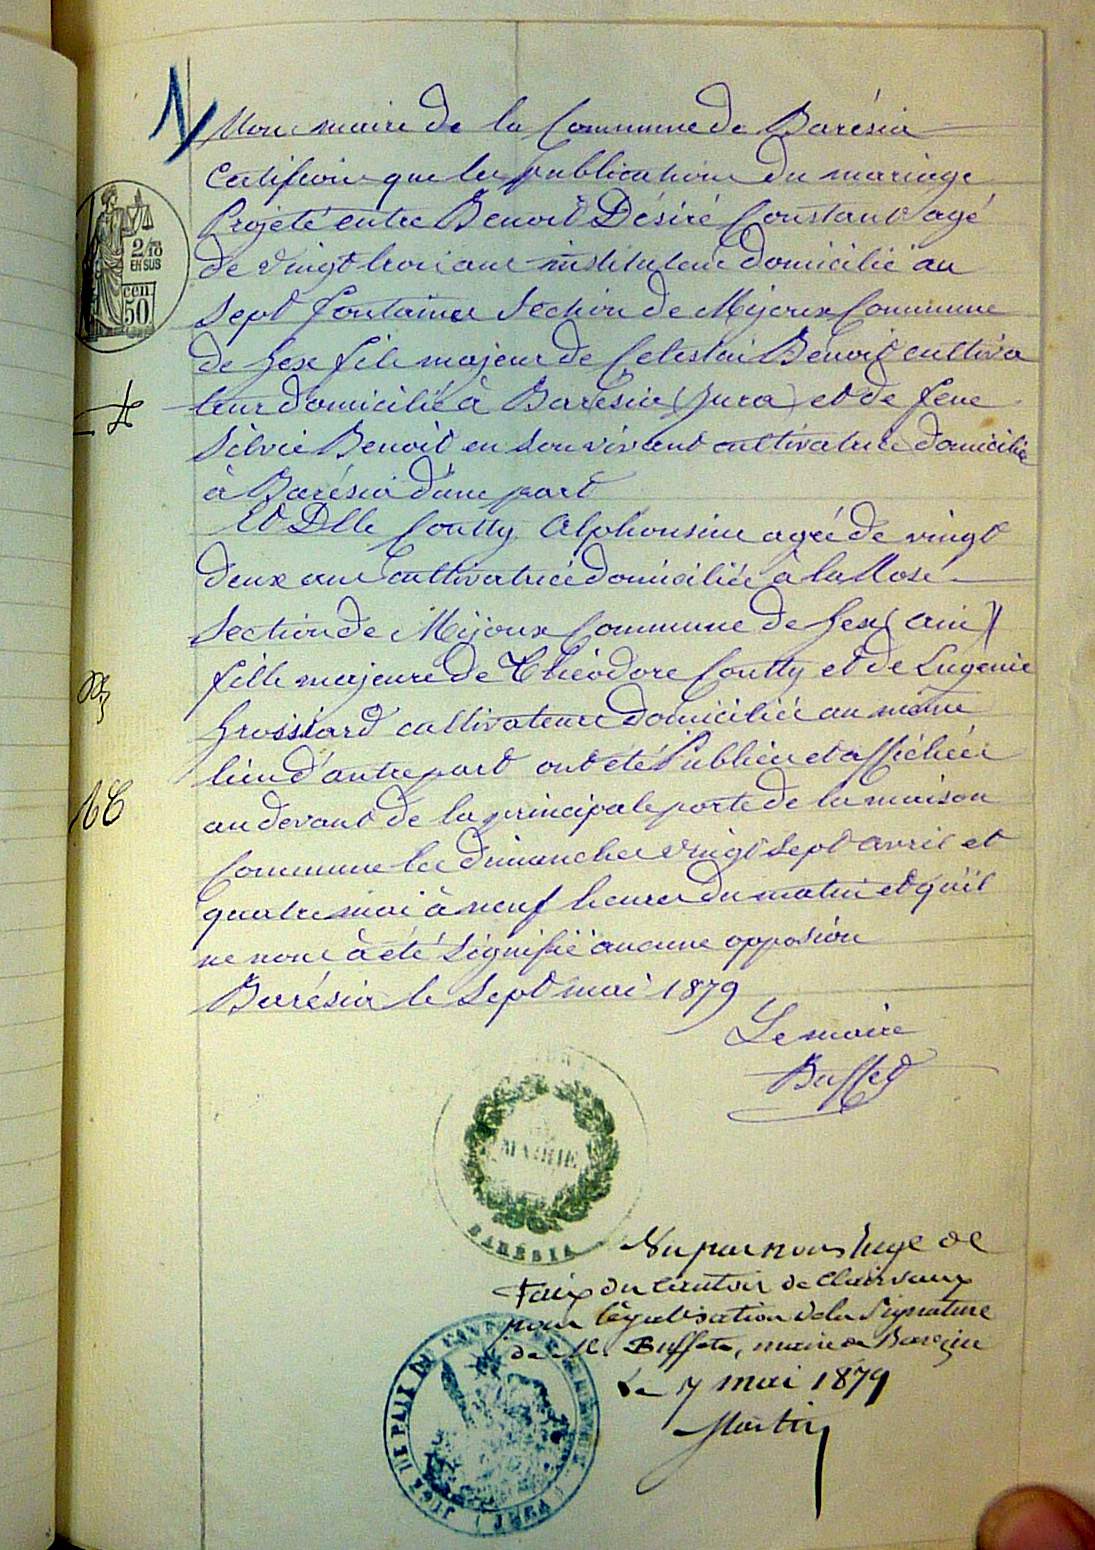 1
Nous maire de la Commune de Barésia
Certifions que les publications du mariage
Projeté entre Benoit Désiré Constant agé
de vingt trois ans instituteur domicilié au
Sept fontaines Section de Mijoux Commune
de Gex fils majeur de Celestin Benoit cultiva
teur domicilié à Barésia (Jura) et de feue
Silvie Benoit en son vivant cultivatrice domicilié
à Barésia d'une part
Et Dlle Coutty Alphonsine agée de vingt
deux ans cultivatrice domiciliée à la
Section de Mijoux Commune de Gex (ain)
fille majeure de Théodore Coutty et de Eugenie
Grossiard cultivateurs domiciliés au même
lieu d'autre part ont été Publiées et affichées
au devant de la principale porte de la maison
Commune les dimanches vingt Sept avril et
quatre mai à neuf heures du matin et qu'il
ne nous à été Signifié aucune opposion
Barésia le Sept mai 1879
Le maire
Buffet
2/10
EN SUS
50
MAIRIE
BARÉSIA
Vu par nous Juge de
Paix du canton de Clairvaux
pour légalisation de la Signature
de M. Buffet, maire de Barésia
Le 7 mai 1879
Martin
JUGE DE PAIX DU CANTON DE CLAIRVAUX (JURA)